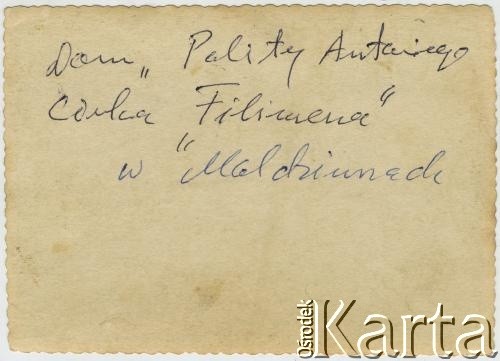 Dom „ Pality Antoniego
Córka Filimena"
w "Mołdziunach
Ośrodek
Karta